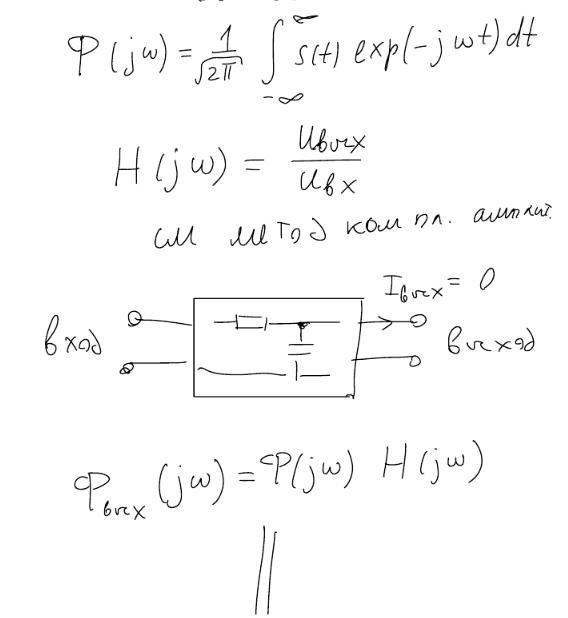 Φ(jω) = 1/√2π ∫_{-∞}^{∞} s(t) exp(-jωt) dt
H(jω) = Uвых/Uвх
см метод компл. амплит.
Iвых = 0
вход
выход
Φвых(jω) = Φ(jω) H(jω)